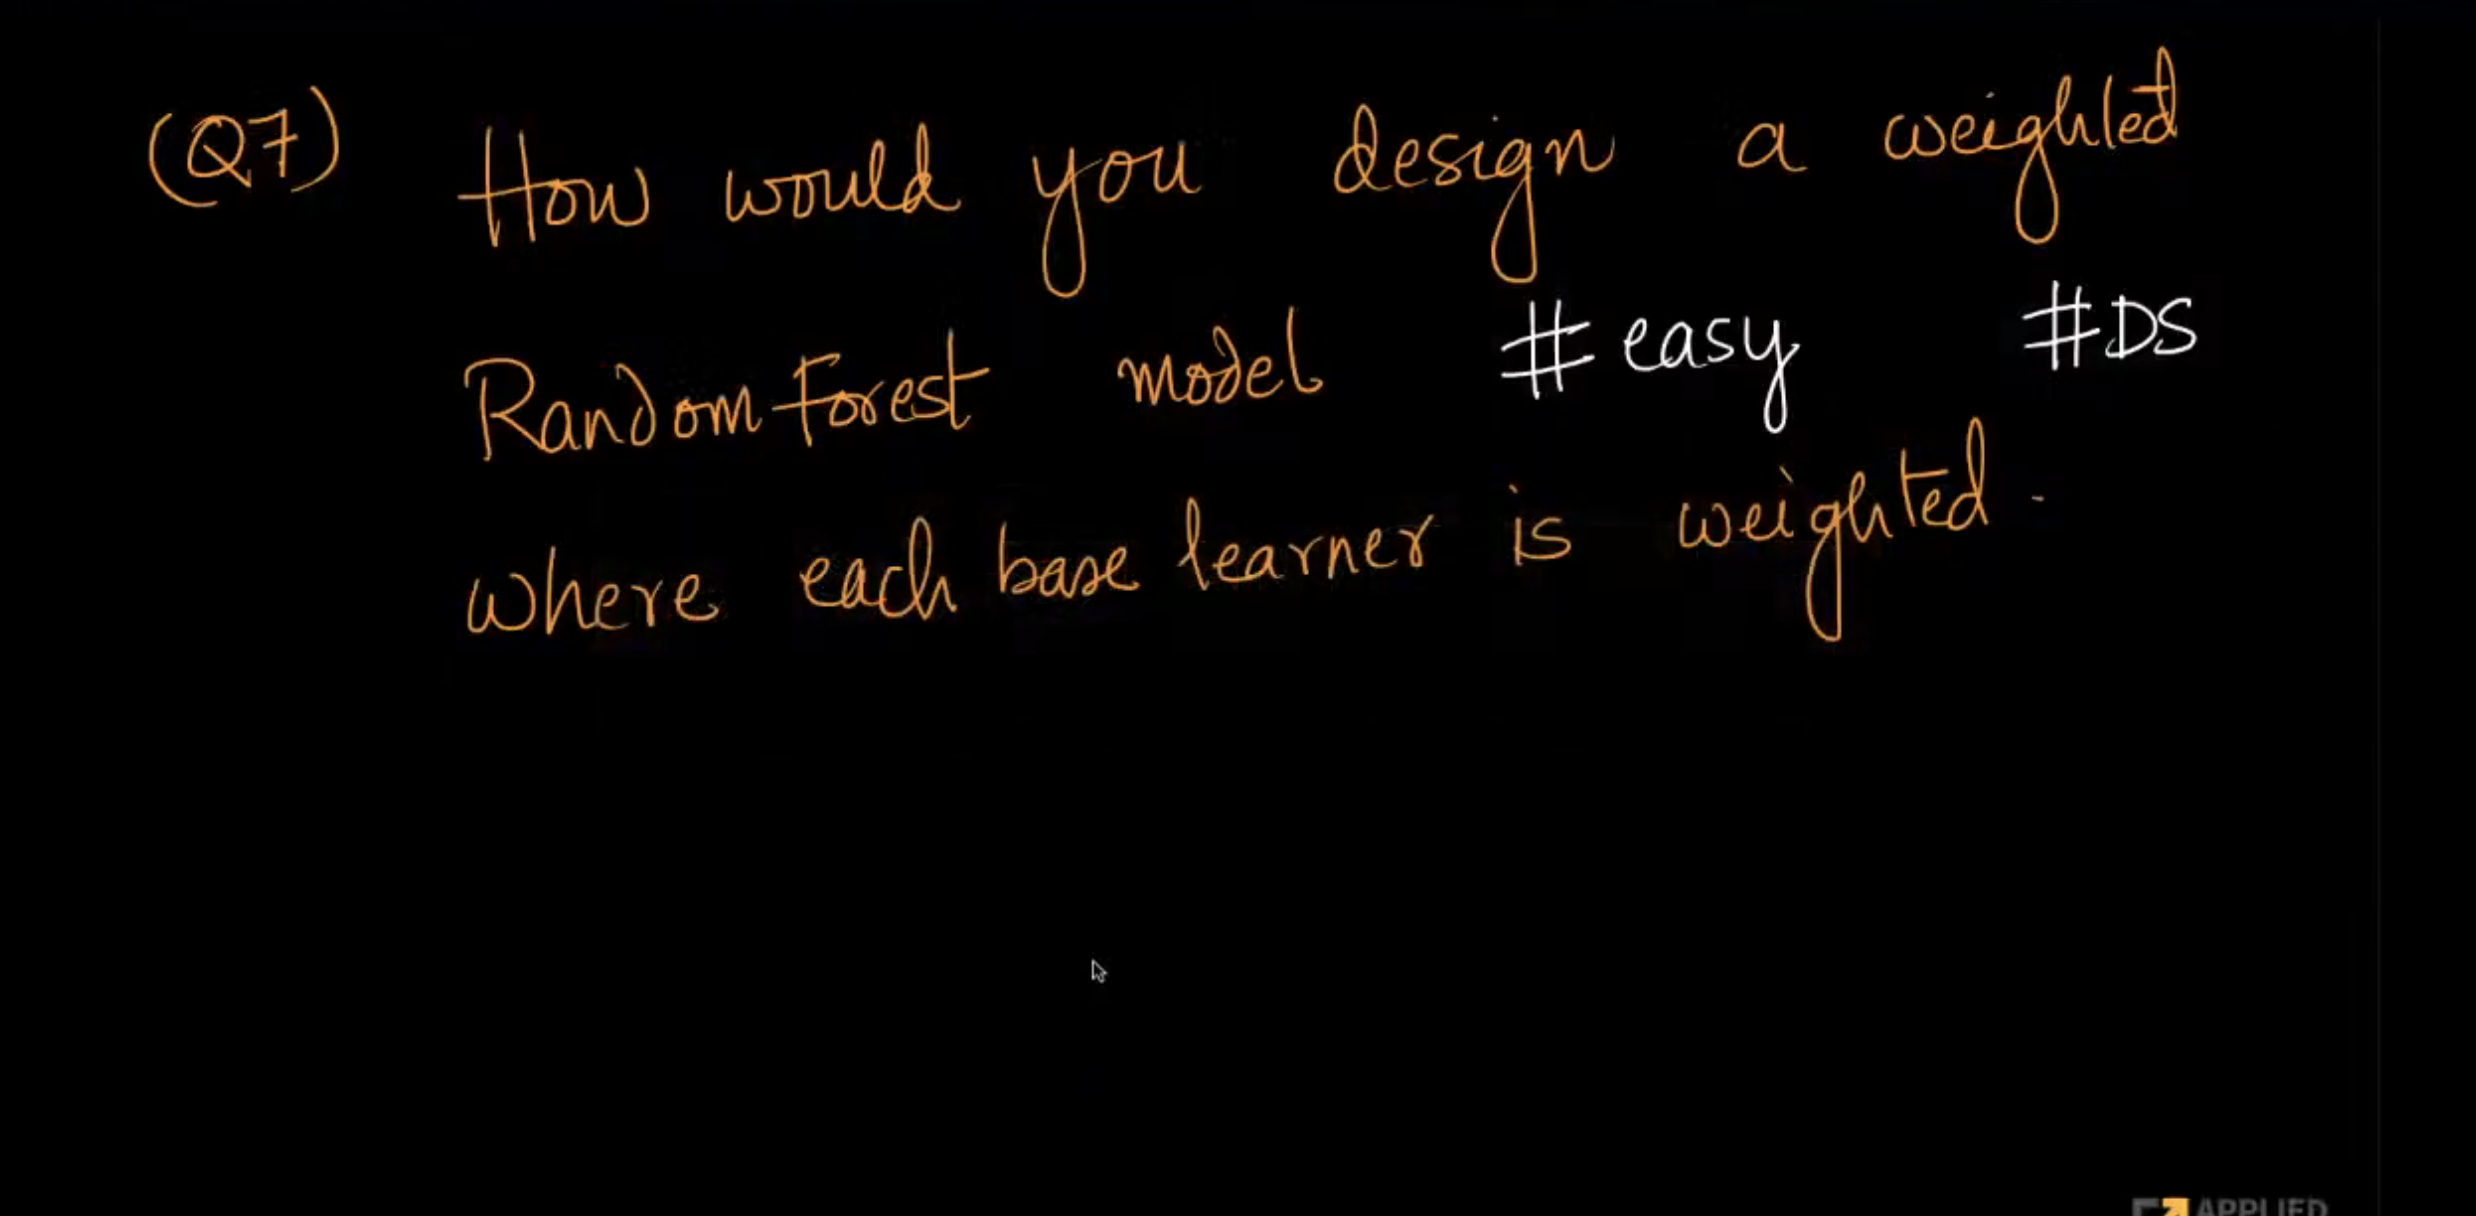 (Q7) How would you design a weighted
Random Forest model #easy #DS
where each base learner is weighted.
APPLIED